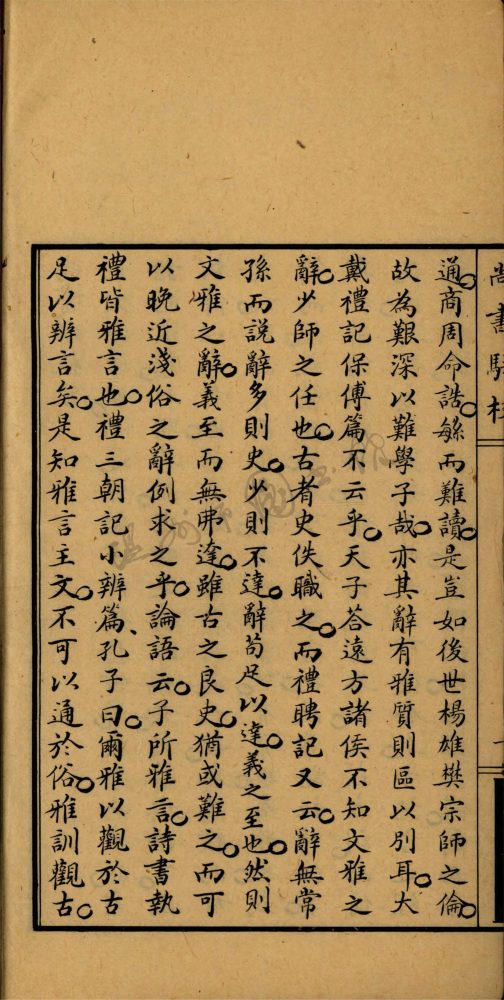 尚書駢枝
通商周命誥絲而難讀是豈如後世楊雄樊宗師之倫
故為艱深以難學子哉亦其辭有雅質則區以別耳大
戴禮記保傅篇不云乎天子荅遠方諸侯不知文雅之
辭少師之任也古者史佚職之而禮聘記又云辭無常
孫而說辭多則史少則不達辭苟足以達義之至也然則
文雅之辭義至而無弗達雖古之良史猶或難之而可
以晚近淺俗之辭例求之乎論語云子所雅言詩書執
禮皆雅言也禮三朝記小辨篇孔子曰爾雅以觀於古
足以辨言矣是知雅言主文不可以通於俗雅訓觀古